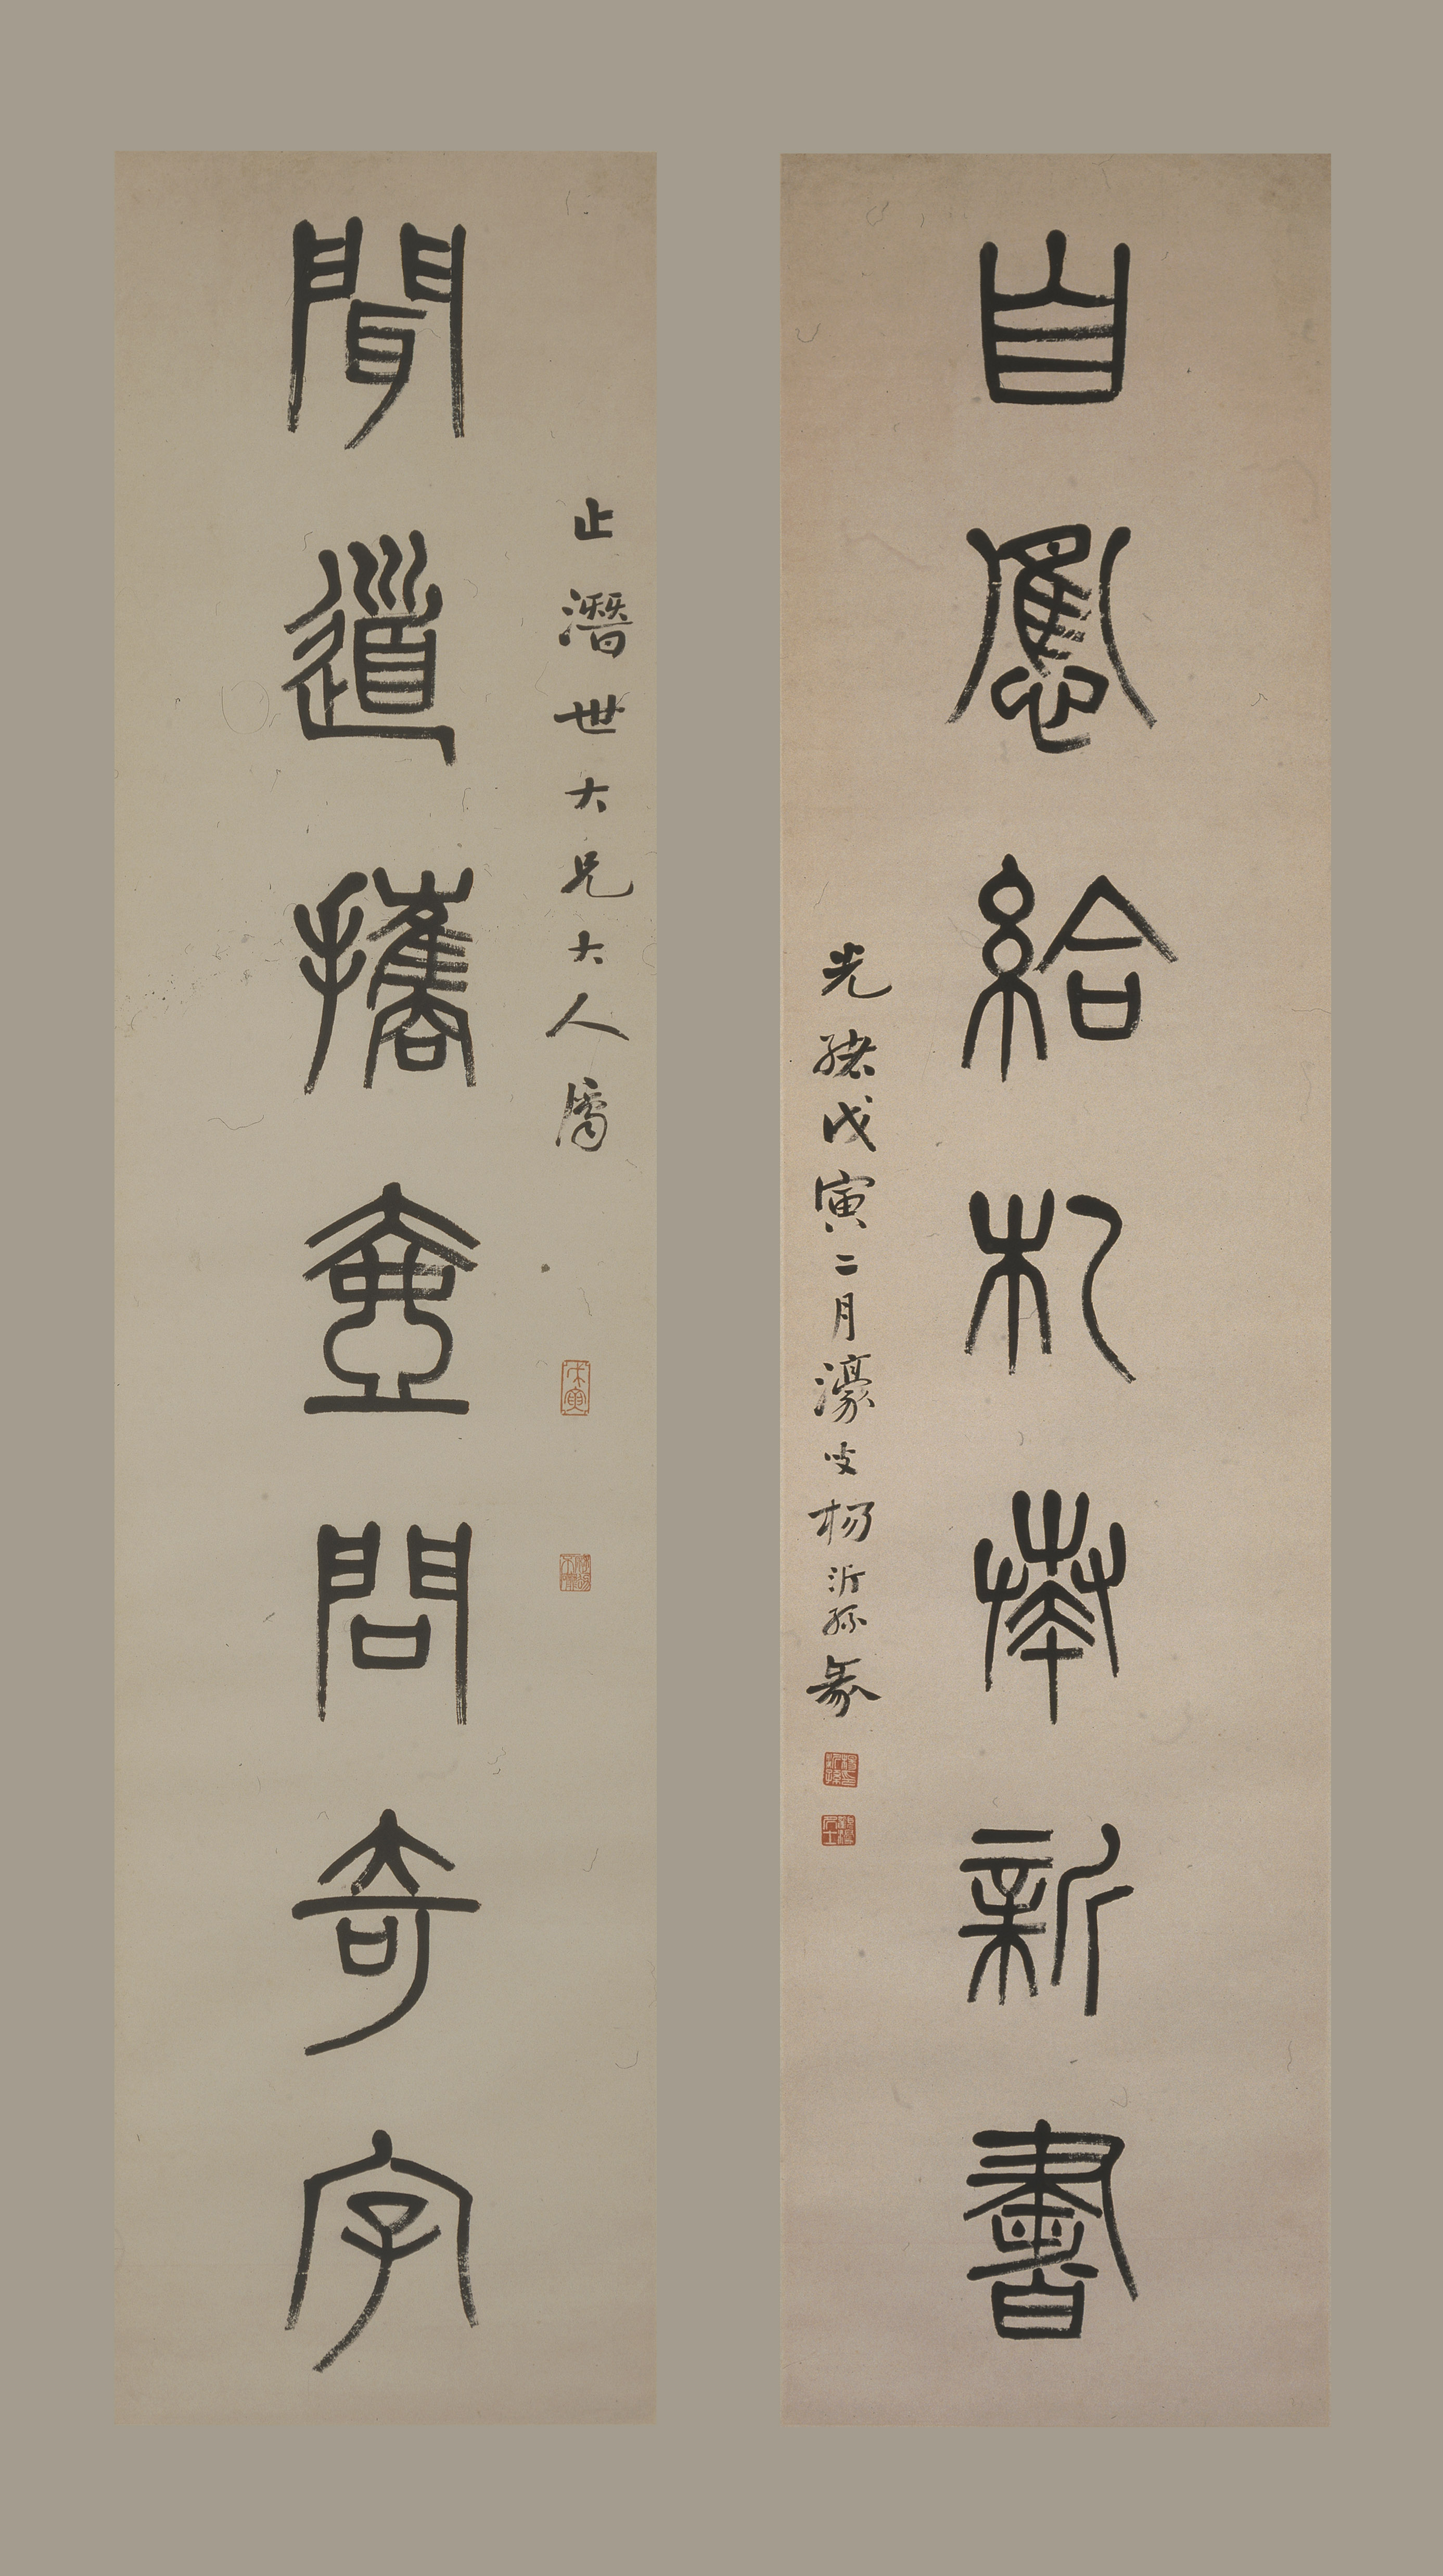 聞道攜壺問奇字
止潛世大兄大人屬
戊寅
自應給札奉新書
光緒戊寅二月濠叟楊沂孫篆